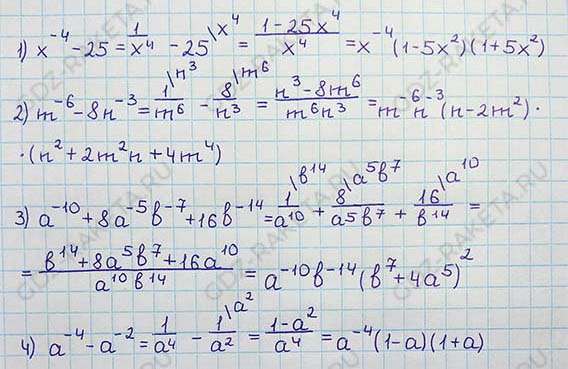 1) x⁻⁴ - 25 = 1/x⁴ - 25\x⁴ = (1-25x⁴)/x⁴ = x⁻⁴(1-5x²)(1+5x²)
2) m⁻⁶ - 8n⁻³ = 1\n³/m⁶ - 8\m⁶/n³ = (n³-8m⁶)/(m⁶n³) = m⁻⁶n⁻³(n-2m²)·
·(n²+2m²n+4m⁴)
3) a⁻¹⁰+8a⁻⁵b⁻⁷+16b⁻¹⁴ = 1\b¹⁴/a¹⁰ + 8\a⁵b⁷/(a⁵b⁷) + 16\a¹⁰/b¹⁴ =
= (b¹⁴+8a⁵b⁷+16a¹⁰)/(a¹⁰b¹⁴) = a⁻¹⁰b⁻¹⁴(b⁷+4a⁵)²
4) a⁻⁴-a⁻² = 1/a⁴ - 1\a²/a² = (1-a²)/a⁴ = a⁻⁴(1-a)(1+a)
GDZ-RAKETA.RU